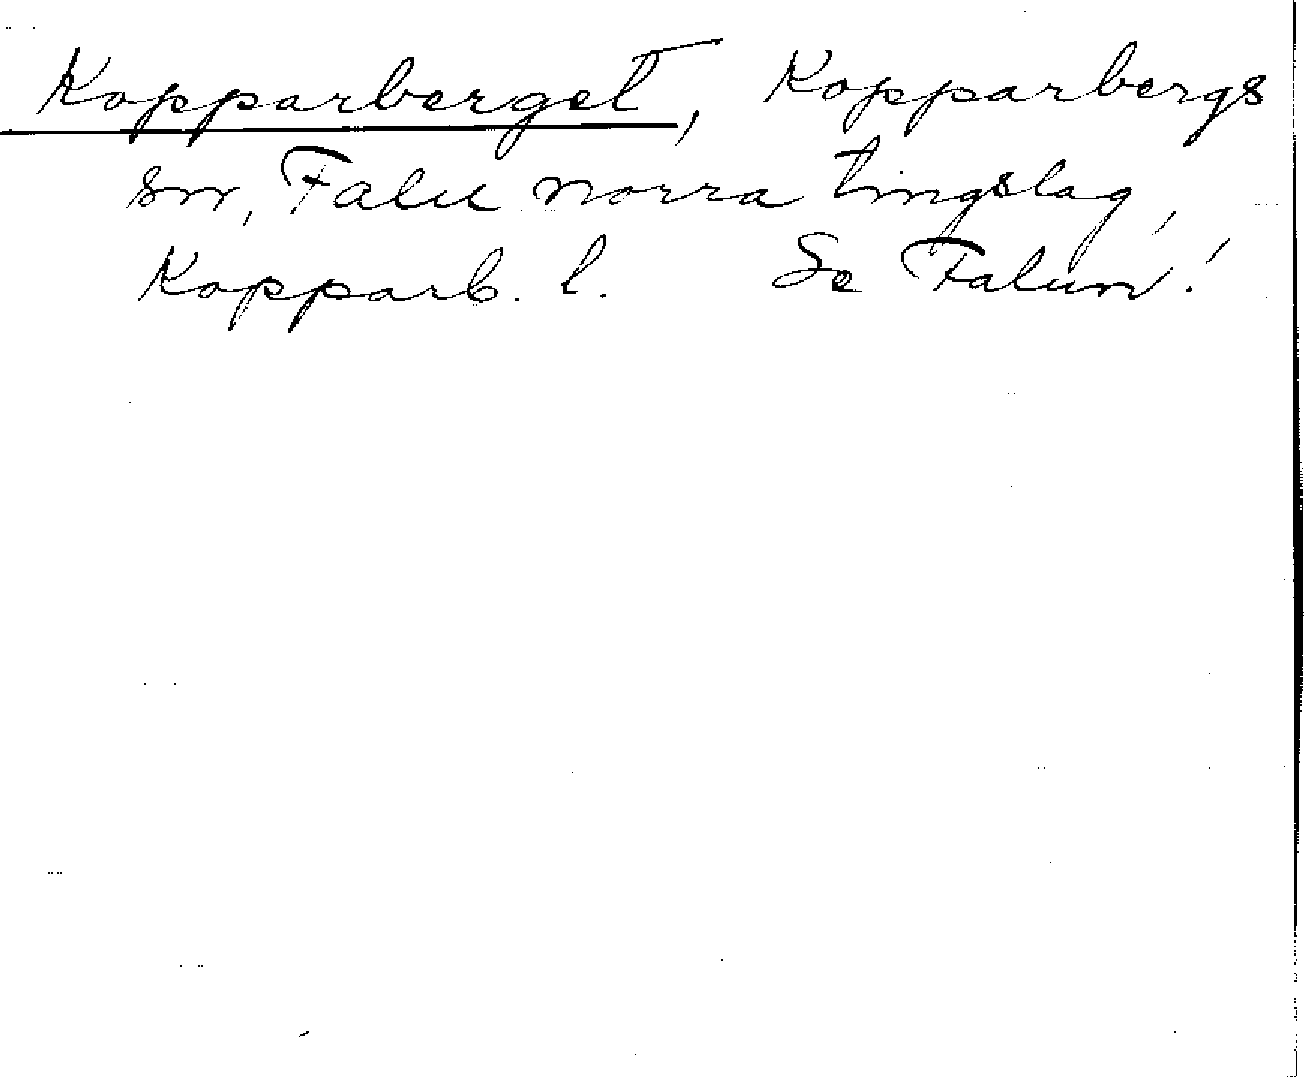 Kopparberget, Kopparbergs
sn, Falu norra tingslag,
Kopparb. l. Se Falun!